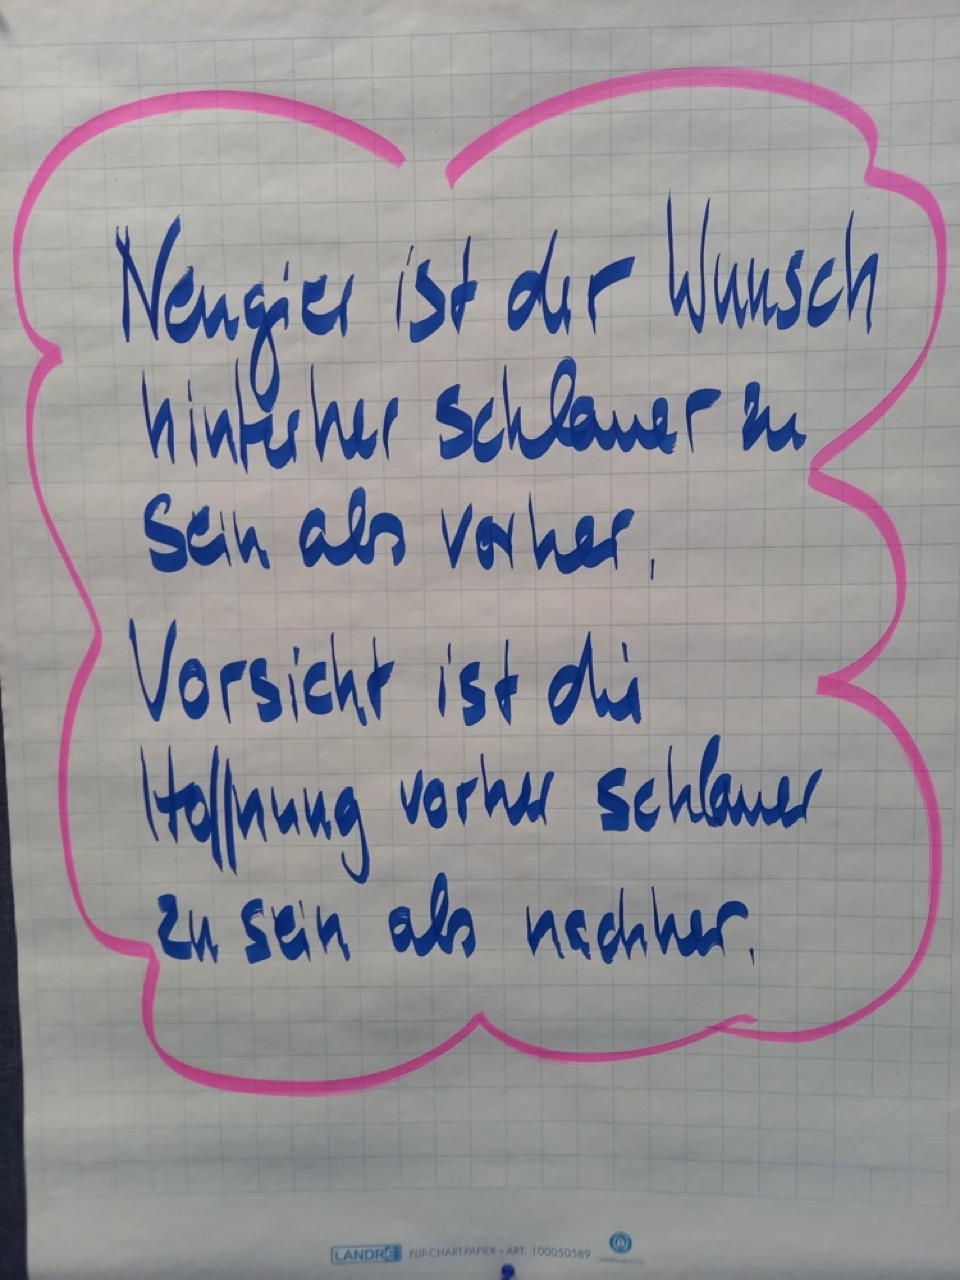 Neugier ist der Wunsch
hinterher schlauer zu
sein als vorher.
Vorsicht ist die
Hoffnung vorher schlauer
zu sein als nachher.
LANDRÉ FLIP-CHART-PAPIER • ART. 100050589